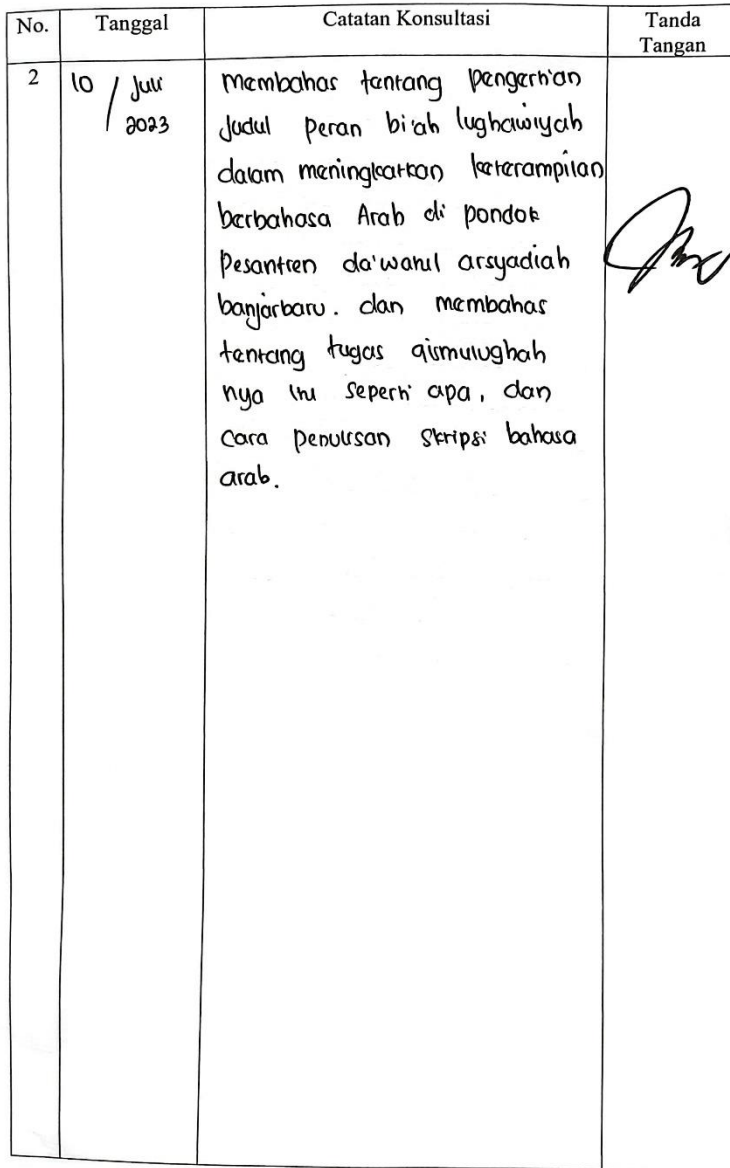 No. Tanggal Catatan Konsultasi Tanda Tangan
2 10 / Juli 2023 membahas tentang pengertian
Judul peran bi'ah lughawiyah
dalam meningkatkan keterampilan
berbahasa Arab di pondok
Pesantren da'watul arsyadiah
banjarbaru. dan membahas
tentang tugas qismulughah
nya itu seperti apa, dan
Cara penulisan skripsi bahasa
arab.